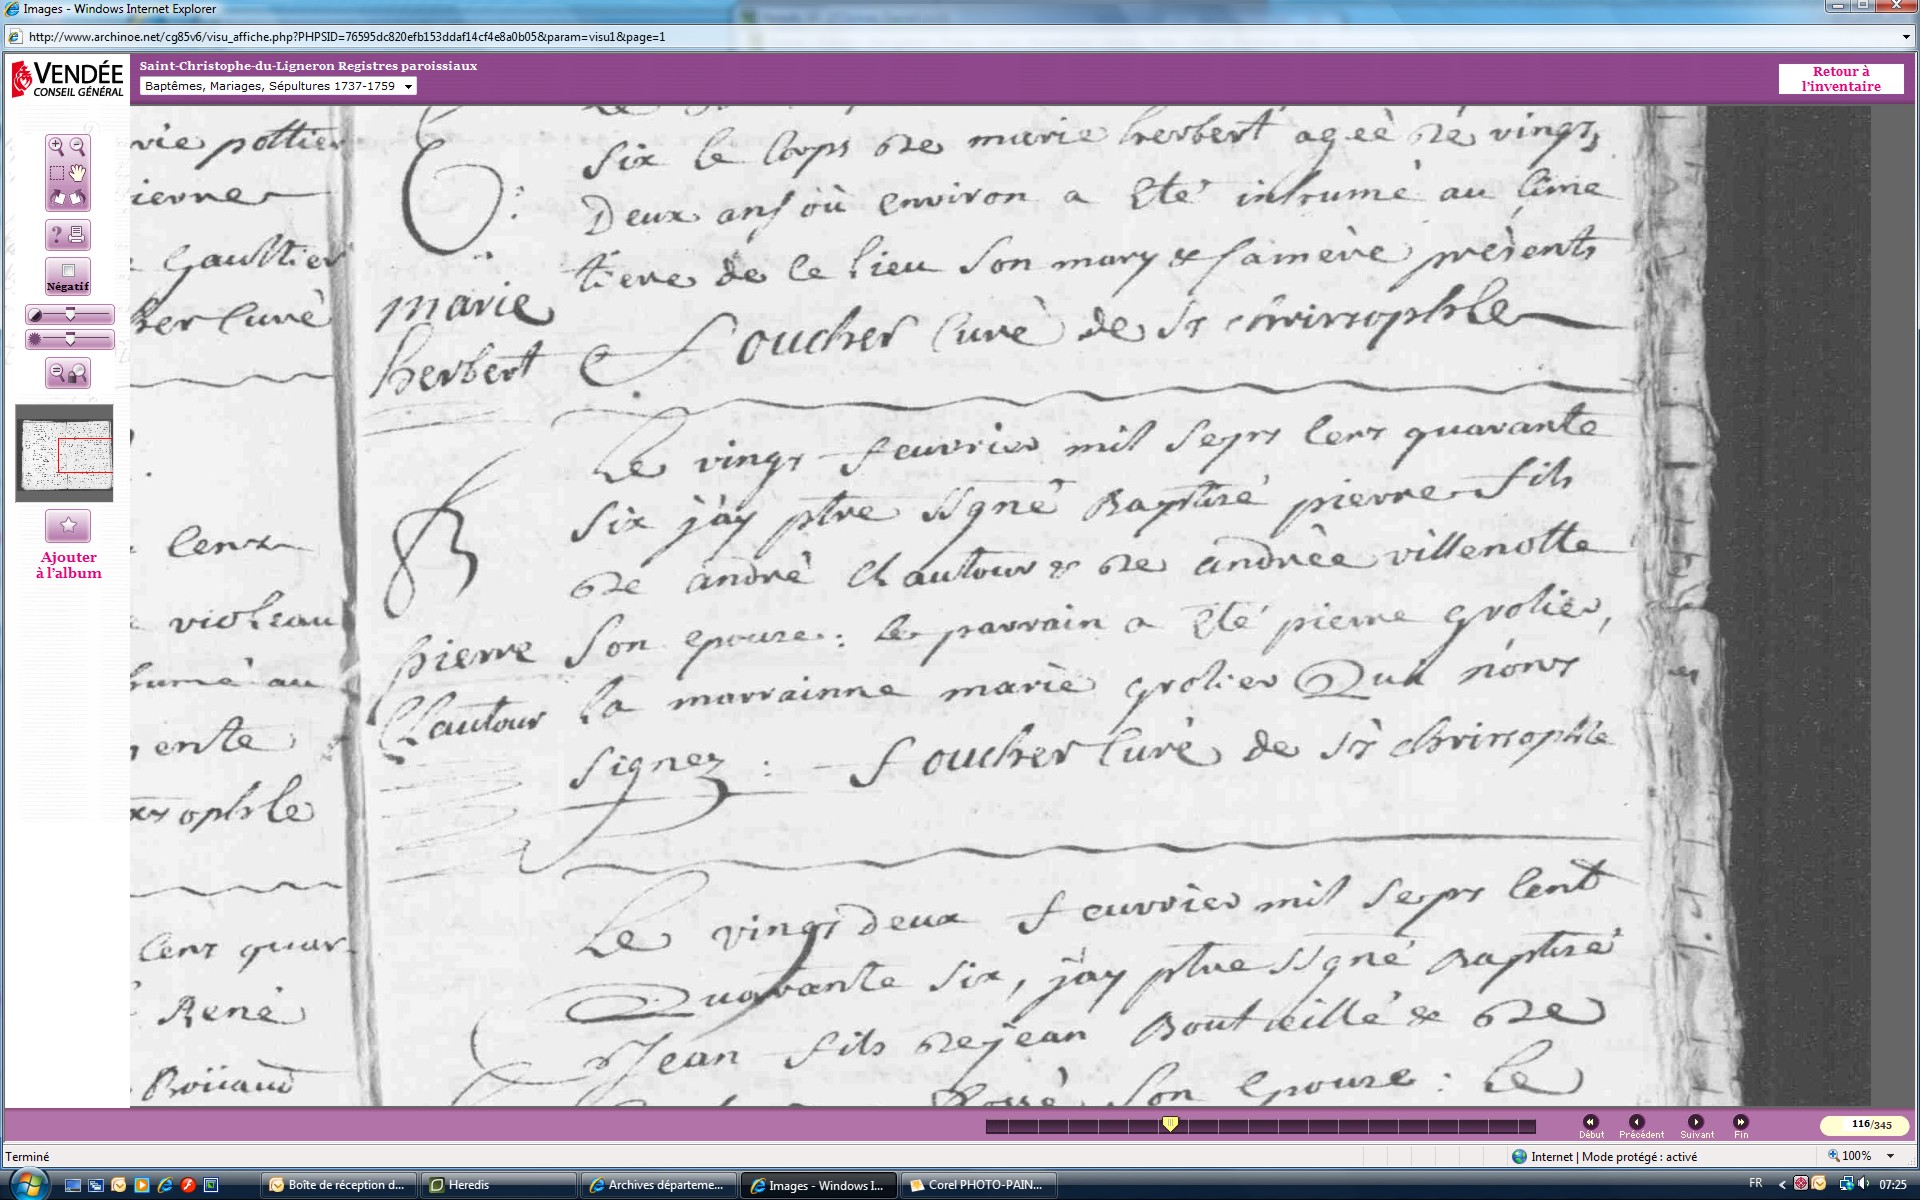 Images - Windows Internet Explorer
http://www.archinoe.net/cg85v6/visu_affiche.php?PHPSID=76595dc820efb153ddaf14cf4e8a0b05&param=visu1&page=1
VENDÉE
CONSEIL GÉNÉRAL
Saint-Christophe-du-Ligneron Registres paroissiaux
Baptêmes, Mariages, Sépultures 1737-1759
Retour à
l'inventaire
Négatif
Ajouter
à l'album
pottier
ierre
Gaultier
her Curé
cent
violeau
humé au
ente
ophle
cent quar-
René
Boüaud
six le corps de marie herbert agée de vingt
Deux ans où environ a été inhumé au cime
tiere de ce lieu son mary & sa mère présents
foucher Curé de St christophle
marie
herbert
Le vingt feuvrier mil sept cent quarante
six j'ay ptre ssgné Baptisé pierre fils
de andré Chautour & de andrée villenotte
son epouze : le parrain a été pierre grolier,
la marrainne marie grolier Qui n'ont
signez : foucher Curé de St christophle
B
pierre
Chautour
Le vingt deux feuvrier mil sept cent
Quarante six, j'ay ptre ssgné Baptisé
Jean fils de jean Bouteillé & de
son epouze : le
Début
Précédent
Suivant
Fin
116/345
Terminé
Internet | Mode protégé : activé
100%
Boîte de réception d...
Heredis
Archives départeme...
Images - Windows I...
Corel PHOTO-PAIN...
FR
07:25